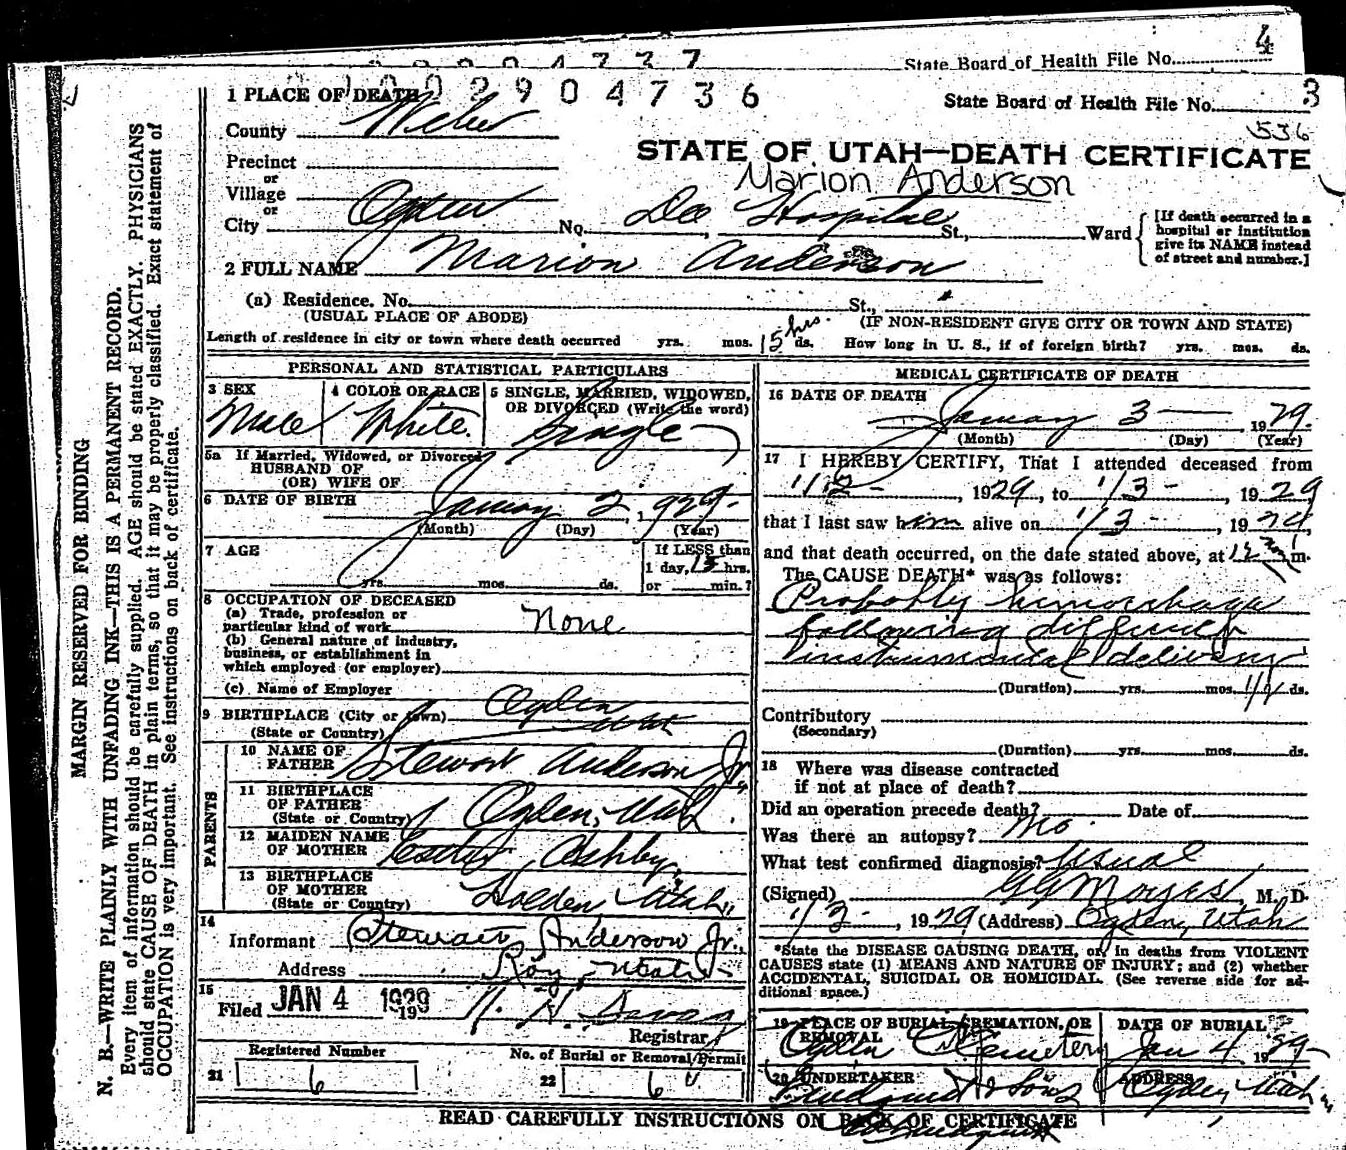 4
State Board of Health File No.
1 0 0 2 9 0 4 7 3 6
State Board of Health File No. 3
536
1 PLACE OF DEATH
County Weber
STATE OF UTAH—DEATH CERTIFICATE
Marion Anderson
Precinct
or
Village
or
City Ogden No. Dee Hospital St., Ward
[If death occurred in a
hospital or institution
give its NAME instead
of street and number.]
2 FULL NAME Marion Anderson
(a) Residence. No. St.,
(USUAL PLACE OF ABODE) (IF NON-RESIDENT GIVE CITY OR TOWN AND STATE)
Length of residence in city or town where death occurred yrs. mos. 15 hrs. ds. How long in U. S., if of foreign birth? yrs. mos. ds.
PERSONAL AND STATISTICAL PARTICULARS
3 SEX
Male
4 COLOR OR RACE
White
5 SINGLE, MARRIED, WIDOWED,
OR DIVORCED (Write the word)
Single
5a If Married, Widowed, or Divorced
HUSBAND OF
(OR) WIFE OF
6 DATE OF BIRTH January 2, 1929.
(Month) (Day) (Year)
7 AGE
yrs. mos. ds.
If LESS than
1 day, 15 hrs.
or min.?
8 OCCUPATION OF DECEASED
(a) Trade, profession or
particular kind of work None
(b) General nature of industry,
business, or establishment in
which employed (or employer)
(c) Name of Employer
9 BIRTHPLACE (City or town) Ogden
(State or Country) Utah
PARENTS
10 NAME OF
FATHER Stewart Anderson Jr.
11 BIRTHPLACE
OF FATHER
(State or Country) Ogden, Utah.
12 MAIDEN NAME
OF MOTHER Esther Ashby
13 BIRTHPLACE
OF MOTHER
(State or Country) Holden Utah
14
Informant Stewart Anderson Jr.
Address Roy, Utah
15
Filed JAN 4 1929
Registrar
Registered Number
21 6
No. of Burial or Removal Permit
22 6
MEDICAL CERTIFICATE OF DEATH
16 DATE OF DEATH
January 3 1929.
(Month) (Day) (Year)
17 I HEREBY CERTIFY, That I attended deceased from
1/2 - , 1929, to 1/3 - , 1929
that I last saw him alive on 1/3 - , 1929,
and that death occurred, on the date stated above, at 12 m.
The CAUSE DEATH* was as follows:
Probably hemorrhage
following difficult
instrumental delivery
(Duration) yrs. mos. ds.
Contributory
(Secondary)
(Duration) yrs. mos. ds.
18 Where was disease contracted
if not at place of death?
Did an operation precede death? Date of
Was there an autopsy? no.
What test confirmed diagnosis? usual
(Signed) M. D.
1/3 - , 1929 (Address) Ogden, Utah
*State the DISEASE CAUSING DEATH, or, in deaths from VIOLENT
CAUSES state (1) MEANS AND NATURE OF INJURY; and (2) whether
ACCIDENTAL, SUICIDAL OR HOMICIDAL. (See reverse side for ad-
ditional space.)
19 PLACE OF BURIAL, CREMATION, OR
REMOVAL
Ogden Cemetery
DATE OF BURIAL
Jan 4 1929
20 UNDERTAKER
& Sons
ADDRESS
Ogden, Utah
READ CAREFULLY INSTRUCTIONS ON BACK OF CERTIFICATE
MARGIN RESERVED FOR BINDING
N. B.—WRITE PLAINLY WITH UNFADING INK—THIS IS A PERMANENT RECORD.
Every item of information should be carefully supplied. AGE should be stated EXACTLY. PHYSICIANS
should state CAUSE OF DEATH in plain terms, so that it may be properly classified. Exact statement of
OCCUPATION is very important. See instructions on back of certificate.